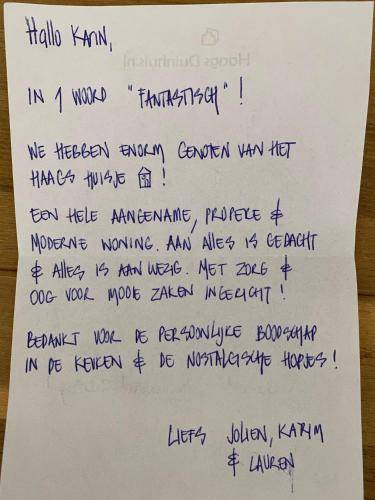 Hallo KARIN,
IN 1 WOORD "FANTASTISCH"!
WE HEBBEN ENORM GENOTEN VAN HET
HAAGS HUISJE !
EEN HELE AANGENAME, PROPERE &
MODERNE WONING. AAN ALLES IS GEDACHT
& ALLES IS AANWEZIG. MET ZORG &
OOG VOOR MOOIE ZAKEN INGERICHT!
BEDANKT VOOR DE PERSOONLIJKE BOODSCHAP
IN DE KEUKEN & DE NOSTALGISCHE HOPJES!
LIEFS JOLIEN, KARIM
& LAUREN
Haags Duinhuis.nl